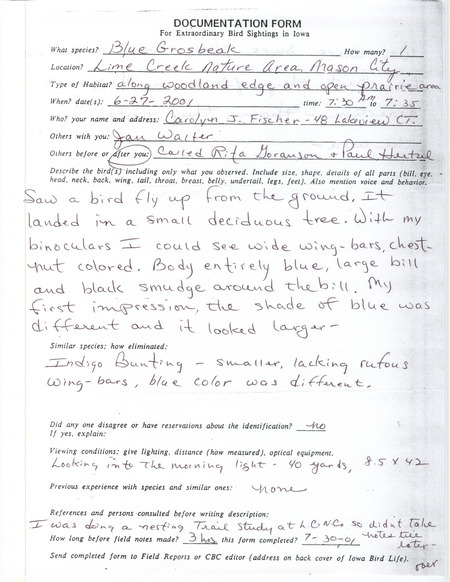 DOCUMENTATION FORM
For Extraordinary Bird Sightings in Iowa
What species? Blue Grosbeak How many? 1
Location? Lime Creek Nature Area, Mason City
Type of Habitat? along woodland edge and open prairie area
When? date(s): 6-27-2001 time: 7:30 AM to 7:35
Who? your name and address: Carolyn J. Fischer - 48 Lakeview CT.
Others with you: Jan Walter
Others before or after you: Called Rita Goranson + Paul Hertzel
Describe the bird(s) including only what you observed. Include size, shape, details of all parts (bill, eye,
head, neck, back, wing, tail, throat, breast, belly, undertail, legs, feet). Also mention voice and behavior.
Saw a bird fly up from the ground. It
landed in a small deciduous tree. With my
binoculars I could see wide wing-bars, chest-
nut colored. Body entirely blue, large bill
and black smudge around the bill. My
first impression, the shade of blue was
different and it looked larger-
Similar species; how eliminated:
Indigo Bunting - smaller, lacking rufous
wing-bars, blue color was different.
Did any one disagree or have reservations about the identification? no
If yes, explain:
Viewing conditions: give lighting, distance (how measured), optical equipment.
Looking into the morning light - 40 yards, 8.5 x 42
Previous experience with species and similar ones: none
References and persons consulted before writing description:
I was doing a nesting Trail Study at L.C.N.C. so didn't take
How long before field notes made? 3 hrs this form completed? 7-30-01 notes till
later-
Send completed form to Field Reports or CBC editor (address on back cover of Iowa Bird Life).
over